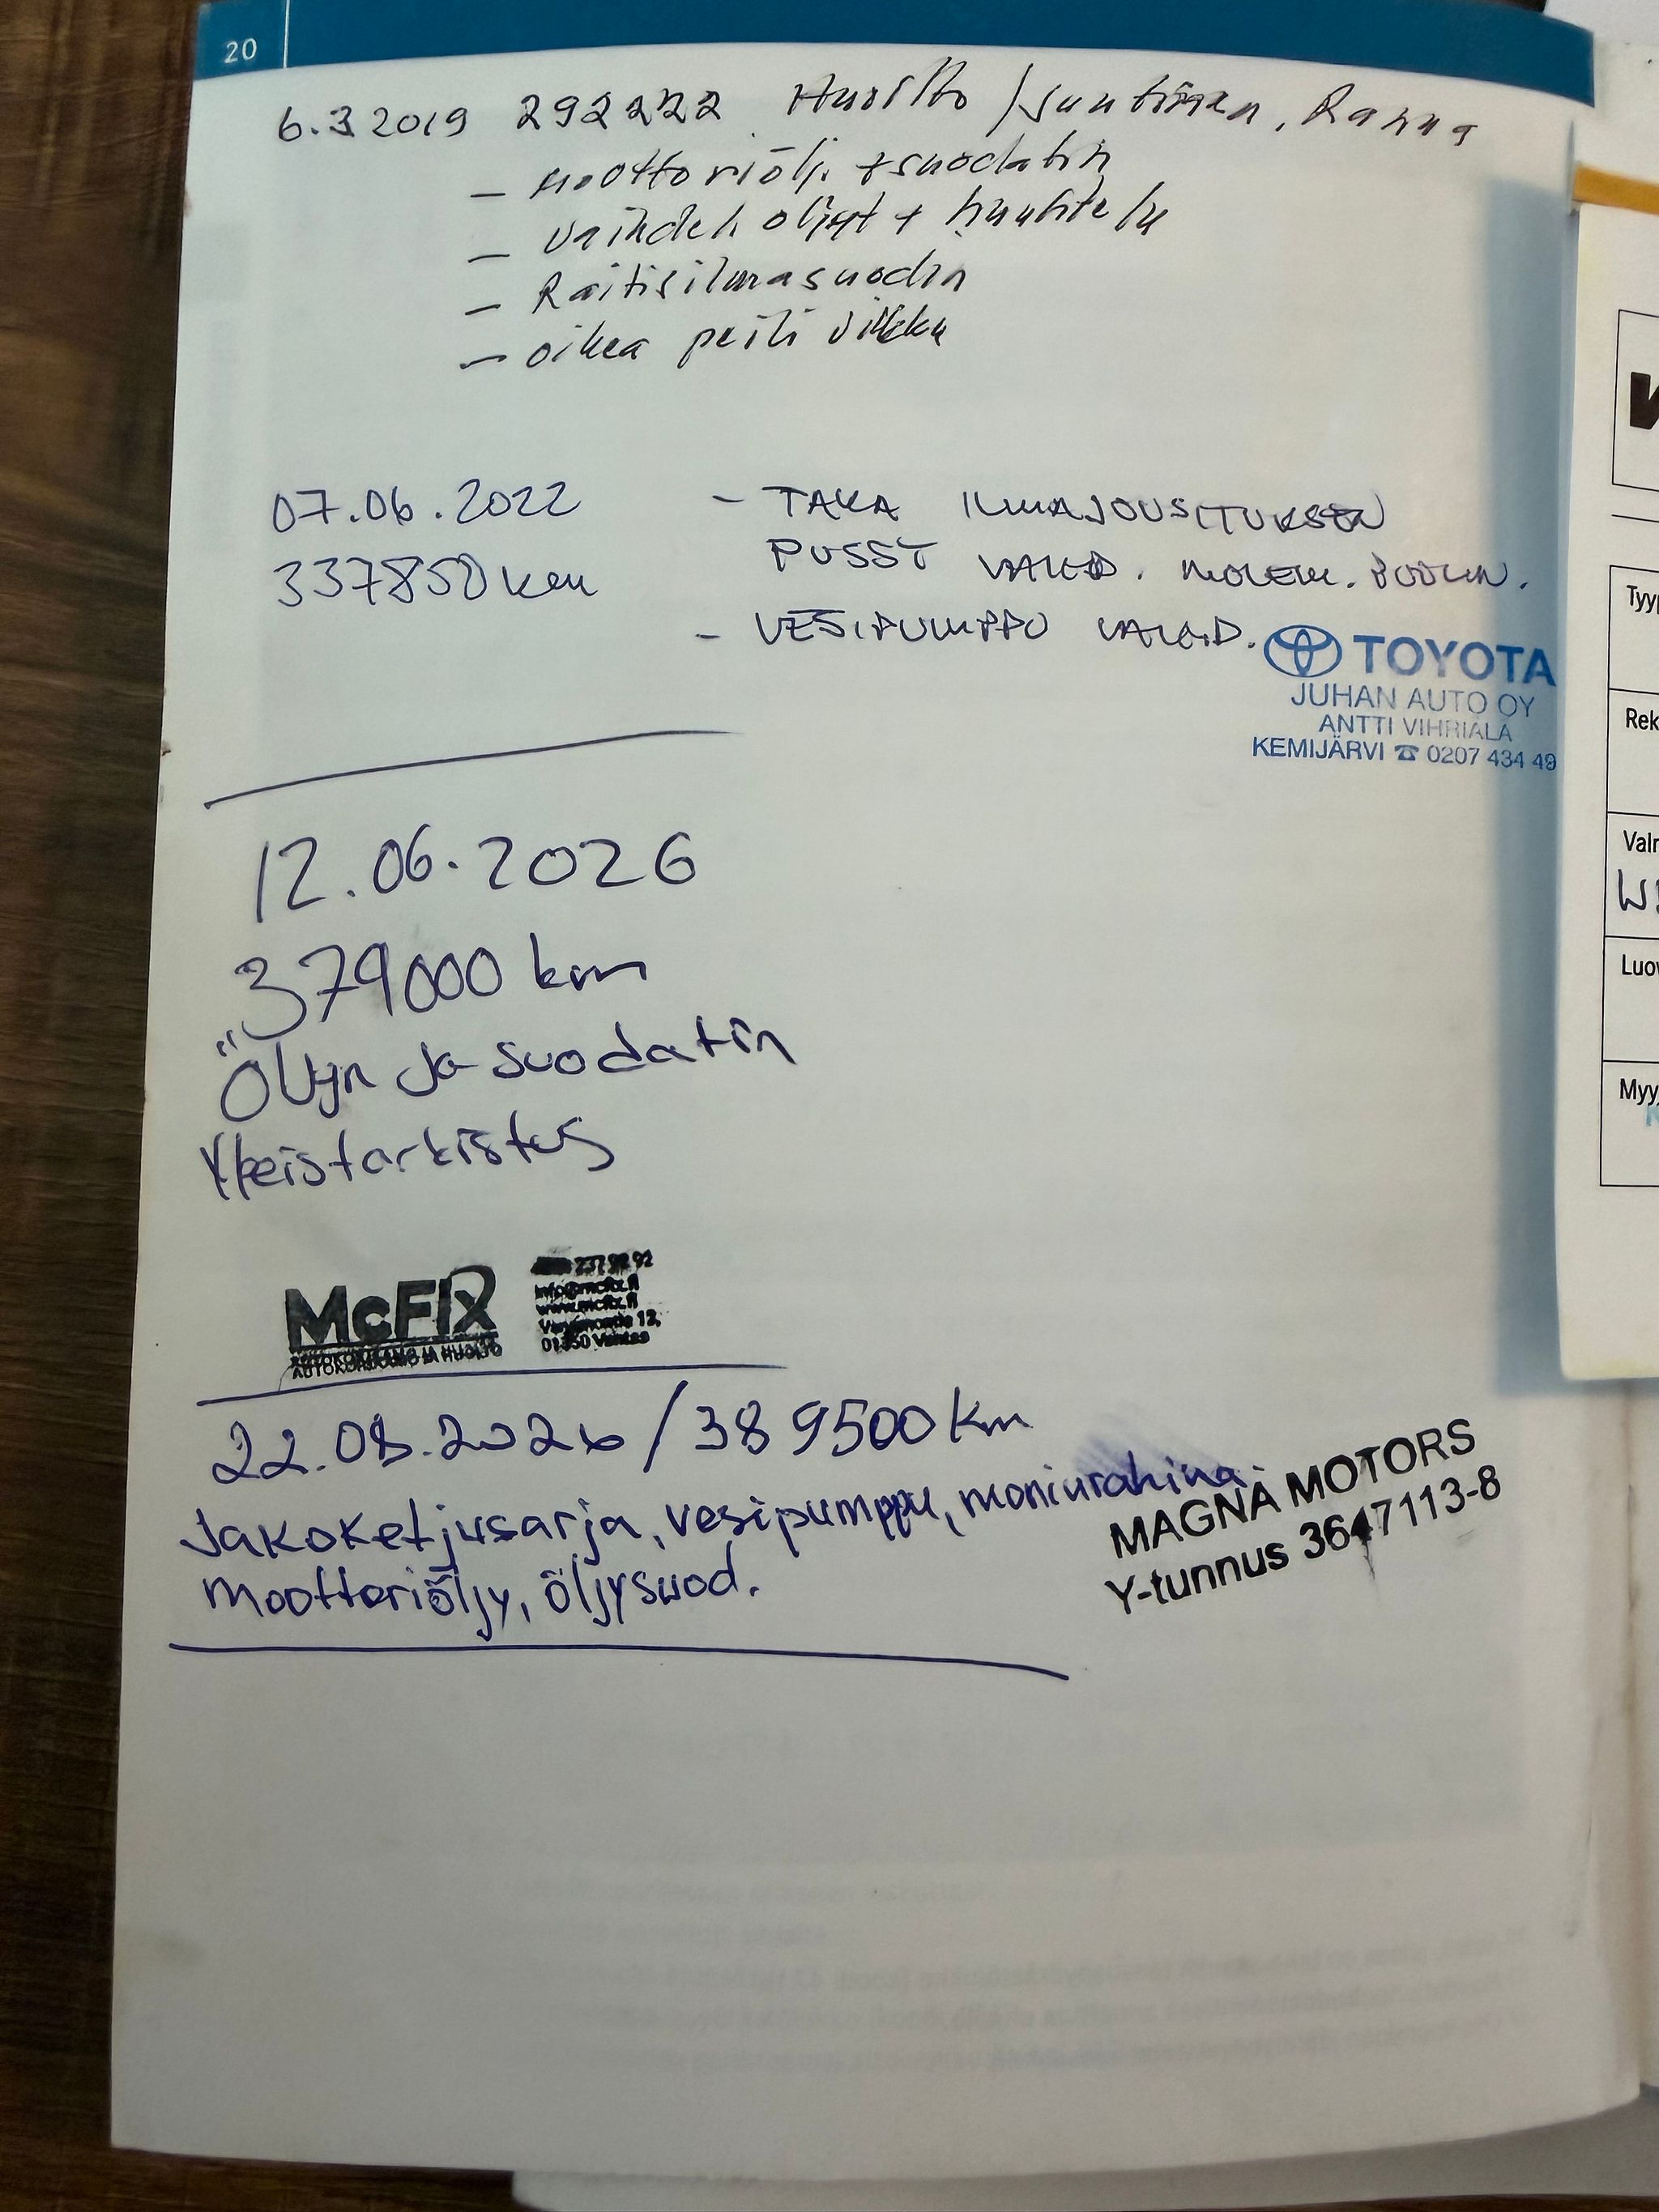 20
6.3 2019 292222 Huolto / Juntinen, Ranua
- moottoriölj. + suodatin
- vaihdeh. öljyt + huuhtelu
- Raitisilmasuodin
- oikea peili vilkku
07.06.2022 - TAKA ILMAJOUSITUKSEN
337850 km PUSSIT VAIHD. MOLEM. PUOLIN.
- VESIPUMPPU VAIHD.
TOYOTA
JUHAN AUTO OY
ANTTI VIHRIÄLÄ
KEMIJÄRVI ☎ 0207 434 49
12.06.2026
379000 km
Öljyn ja suodatin
Yleistarkistus
McFix
237 92 92
info@mcfix.fi
www.mcfix.fi
12,
Vantaa
AUTOKORJAAMO JA HUOLTO
22.08.2026 / 389500 km
Jakoketjusarja, vesipumppu, moniurahihna
Moottoriöljy, öljysuod.
MAGNA MOTORS
Y-tunnus 3647113-8
Tyy
Rek
Val
Luo
Myy